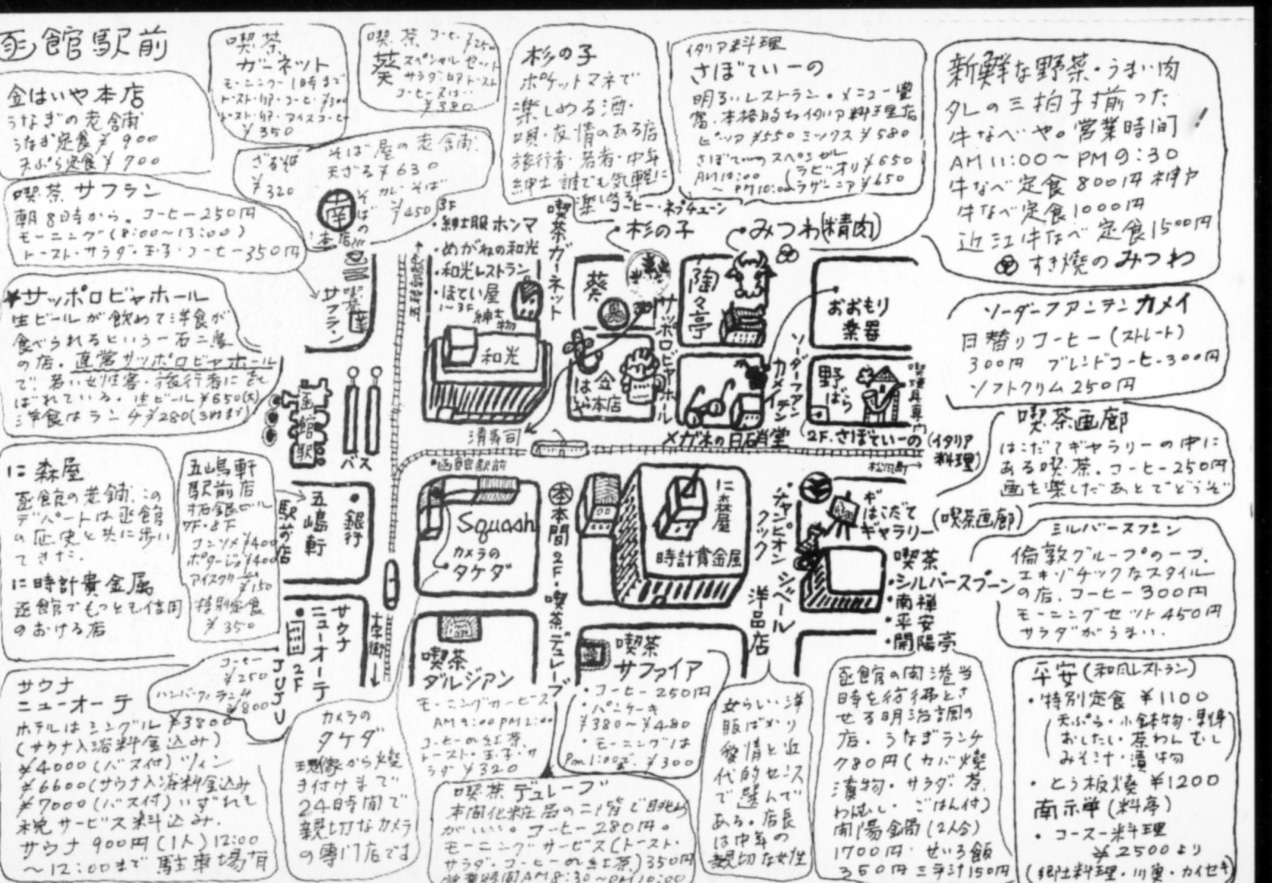 函館駅前
金はいや本店
うなぎの老舗
うなぎ定食¥900
天ぷら定食¥700
喫茶
ガーネット
モーニング11時まで
¥350
喫茶 コーヒー¥250
葵 スペシャルセット
サラダ・卵・トースト
コーヒー又は…
¥380
杉の子
ポケットマネで
楽しめる酒・
唄・友情のある店
旅行者・若者・中年
紳士 誰でも気軽に
楽しめる
イタリア料理
さぼてぃーの
明るいレストラン。メニュー豊
富、本格的なイタリア料理店
ピッツア¥550 ミックス¥580
さぼてぃのスペシャル
AM10:00 (ラビオリ¥650
〜PM10:00 ラザニア¥650
新鮮な野菜・うまい肉
タレの三拍子揃った
牛なべや。営業時間!
AM11:00〜PM9:30
牛なべ定食800円
牛なべ定食1000円
近江牛なべ定食1500円
すき焼のみつわ
そば屋の老舗
ざるそば
¥320
天ざる¥630
カレーそば
¥450
南
本店
喫茶サフラン
朝8時から。コーヒー250円
モーニング(8:00〜13:00)
トースト・サラダ・玉子・コーヒー350円
喫茶
サフラン
サッポロビヤホール
生ビールが飲めて洋食が
食べられるという一石二鳥
の店。直営サッポロビヤホール
で、若い女性客・旅行者に喜
ばれている。生ビール¥650(大)
洋食はランチ¥280(3時まで)
3F
・紳士服ホンマ
・めがねの和光
・和光レストラン
・ほてい屋
1〜3F
和光
喫茶ガーネット
コーヒー・ネプチューン
・杉の子
・みつわ(精肉)
葵
陶々亭
サッポロビヤホール
おおもり
楽器
ソーダーファンテン
カメイ
野ばら
喫煙具専門
金はいや本店
清寿司
メガネの白石省堂
2F.さぼてぃーの(イタリア
料理)
松風町
ソーダーファンテン カメイ
日替りコーヒー(ストレート)
300円 ブレンドコーヒー300円
ソフトクリム250円
喫茶画廊
はこだてギャラリーの中に
ある喫茶。コーヒー250円
画を楽しだあとでどうぞ
函館駅
バス
・函館駅前
に森屋
函館の老舗、この
デパートは函館
の歴史と共に歩い
てきた。
に時計貴金属
函館でもっとも信用
のおける店
五嶋軒
駅前店
拓銀ビル
7F・8F
コンソメ¥400
ポタージュ¥400
アイスクリーム
¥150
特別定食
¥350
五嶋軒
駅前店
・銀行
Squash
カメラの
タケダ
本間2F・喫茶デュレーブ
に森屋
時計貴金属
・チャンピオン
クック
シベール
洋品店
はこだて
ギャラリー
(喫茶画廊)
喫茶
・シルバースプーン
・南禅
・平安
・開陽亭
ミルバースプーン
倫敦グループの一つ、
エキゾチックなスタイル
の店。コーヒー300円
モーニングセット450円
サラダがうまい。
サウナ
ニューオーテ
2F
JUJU
十字街
コーヒー
¥250
ハンバーグランチ
¥800
サウナ
ニューオーテ
ホテルはシングル¥3800
(サウナ入浴料金込み)
¥4000(バス付)ツイン
¥6600(サウナ入浴料金込み
¥7000(バス付)いずれも
税サービス料込み.
サウナ900円(1人)12:00
〜12:00まで 駐車場有
カメラの
タケダ
現像から焼
き付けまで
24時間で
親切なカメラ
の専門店です
喫茶
ダルジァン
モーニングサービス
トースト・玉子・サ
ラダ¥320
喫茶
サファイア
・コーヒー250円
・パンケーキ
¥380〜¥480
・モーニングは
PM1:00まで¥300
喫茶デュレーブ
本間化粧品の二階で眺め
がいい。コーヒー280円。
モーニングサービス(トースト・
サラダ・コーヒーOR紅茶)350円
営業時間AM8:30〜PM10:00
女らしい洋
服ばかり
愛情と近
代的センス
で選んで
ある。店長
は中年の
親切な女性
函館の開港当
時を彷彿とさ
せる明治調の
店。うなぎランチ
780円(カバ焼
漬物・サラダ・茶
わんむし・ごはん付)
開陽金鍋(2人分)
1700円・せいろ飯
350円
平安(和風レストラン)
・特別定食¥1100
(天ぷら・小鉢物・刺身
おしたい・茶わんむし
みそ汁・漬物
・とう板焼¥1200
南禅(料亭)
・コース料理
¥2500より
(郷土料理・川魚・カイセキ)